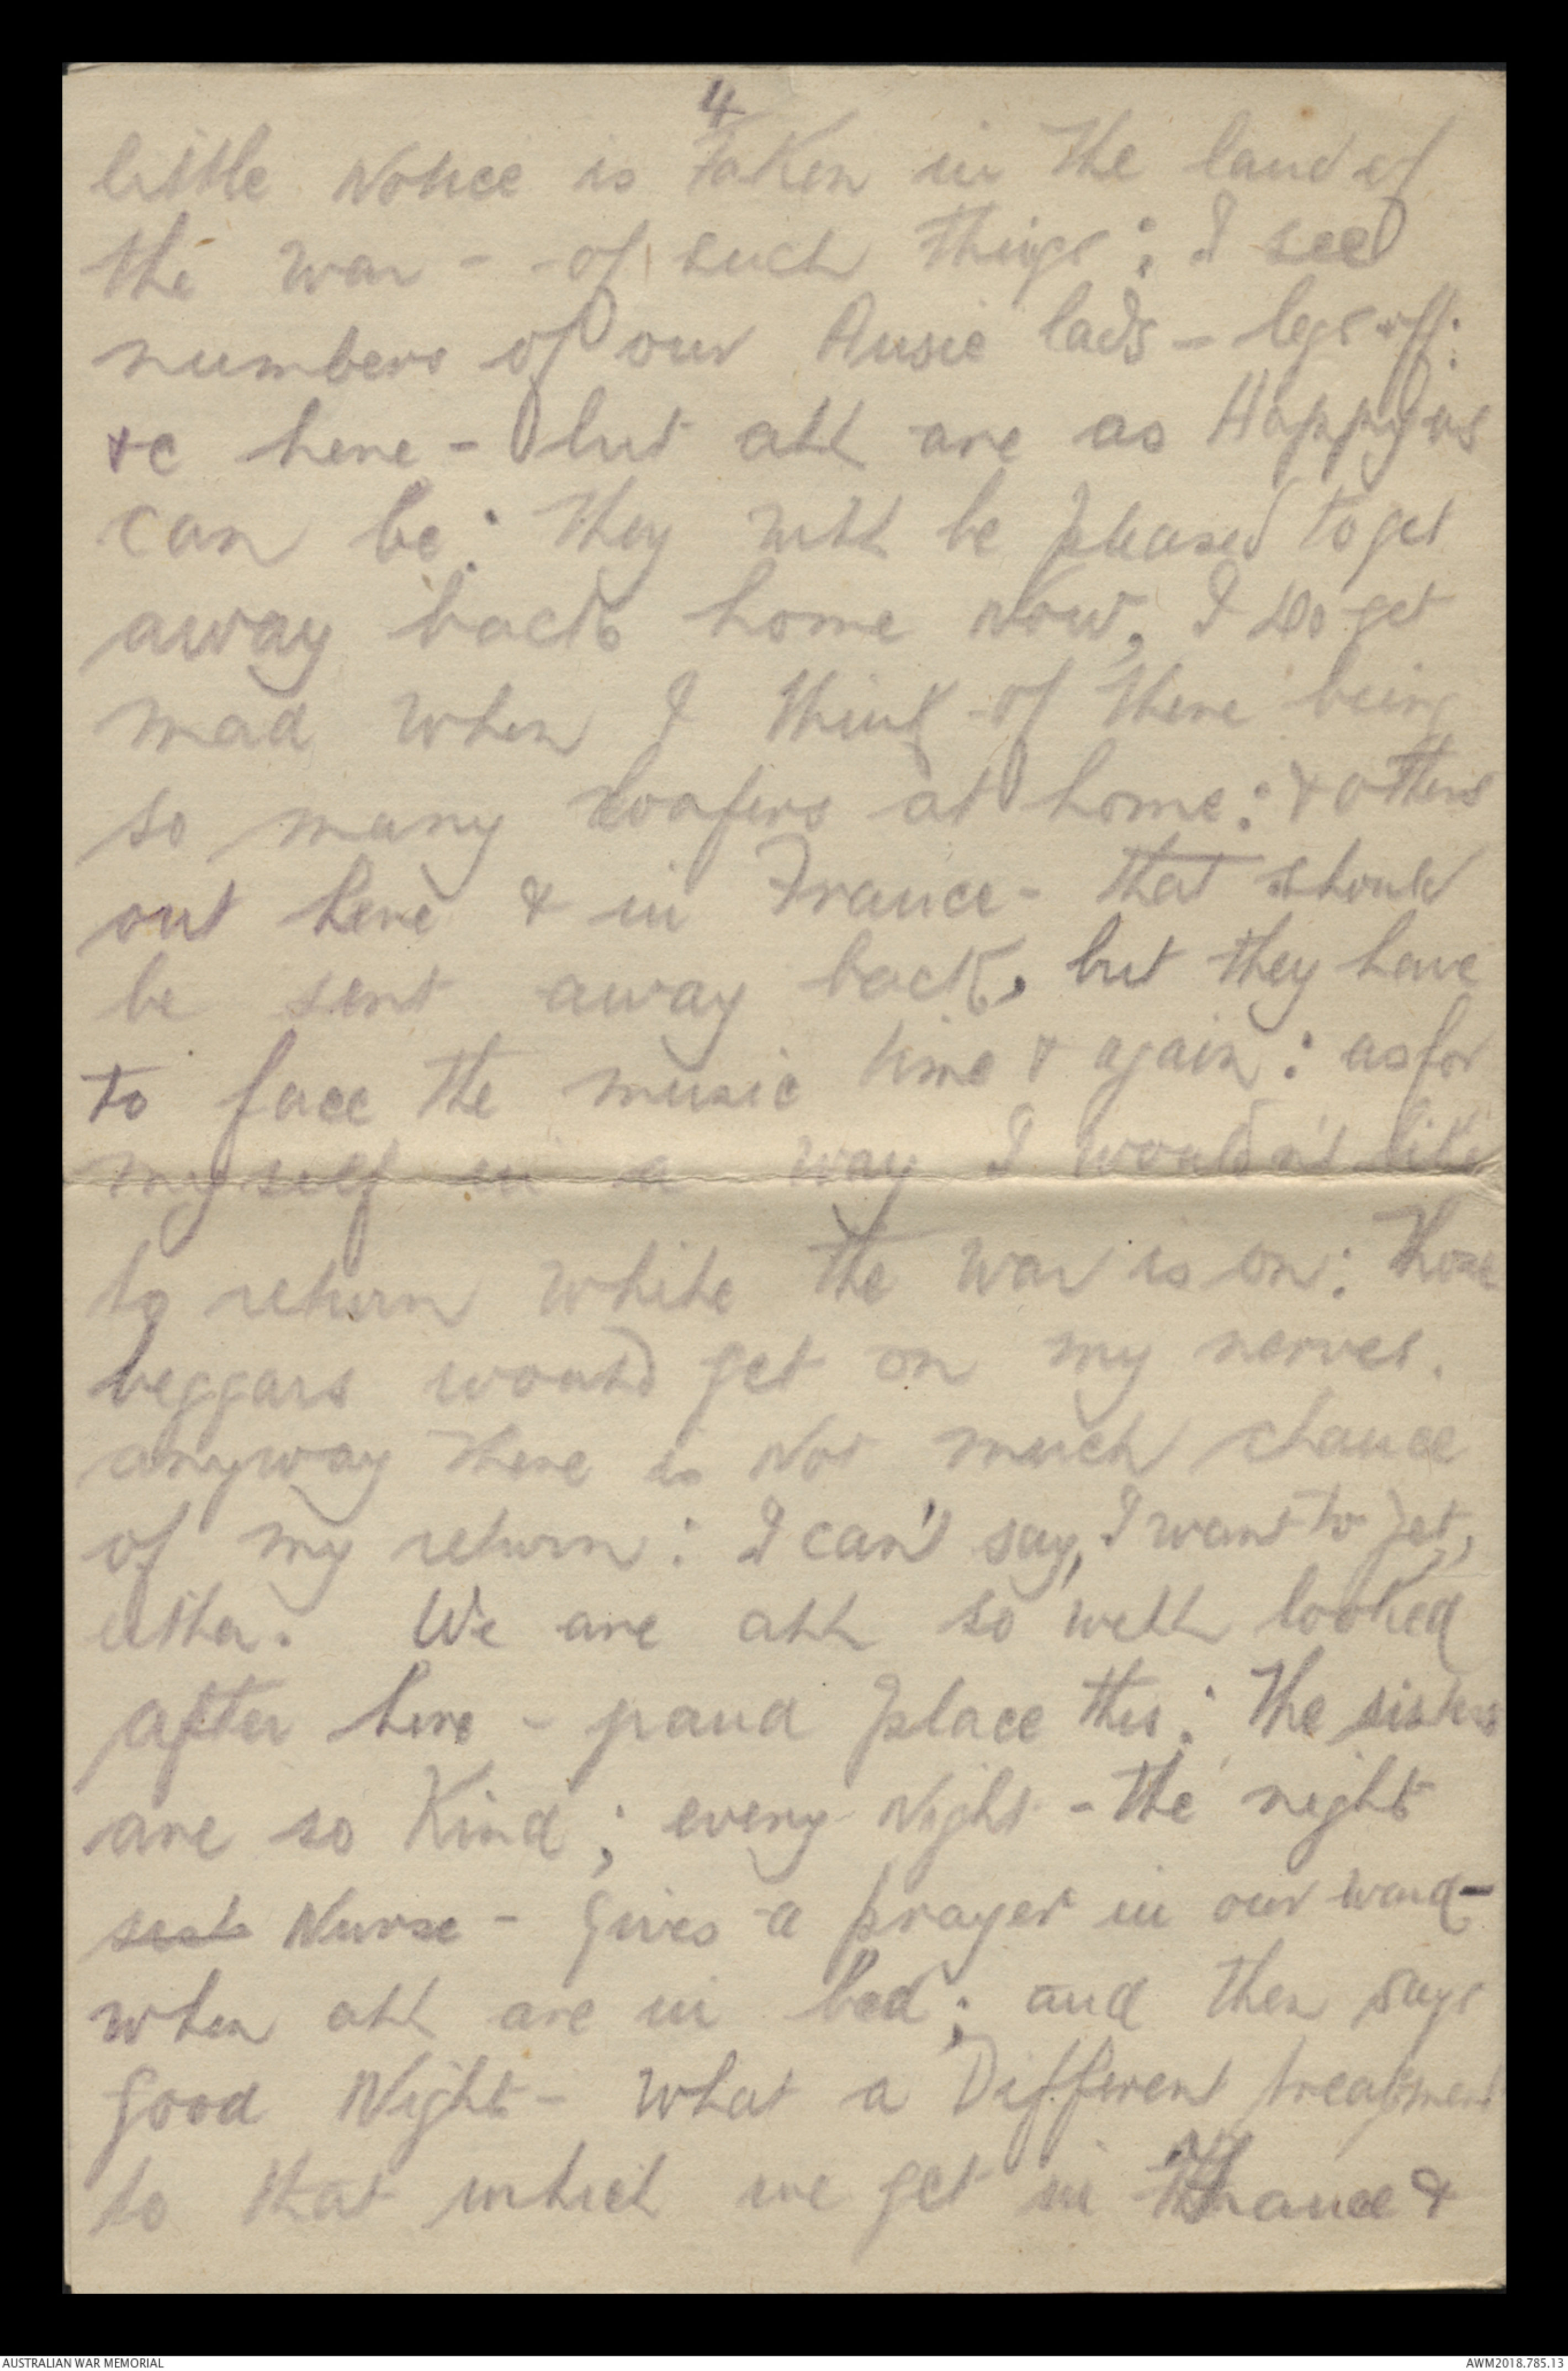 4
little Notice is Taken in the land of
the war - - of such things; I see
numbers of our Ausie lads - legs off.
&c here - but all are as Happy as
can be: They will be pleased to get
away back home Now, I do get
mad when I think of there being
so many loafers at home: & others
out here & in France - that should
be sent away back, but they have
to face the music time & again: as for
myself in a way I wouldn't like
to return while the war is on: Those
beggars would get on my nerves.
anyway there is Not much chance
of my return: I can't say, I want to yet,
either. We are all so well looked
after here - grand place this: The sisters
are so Kind; every Night - the night
Nurse - gives a prayer in our ward -
when all are in bed; and then says
good Night - What a Different treatment
to that which we get in France &
AUSTRALIAN WAR MEMORIAL
AWM2018.785.13